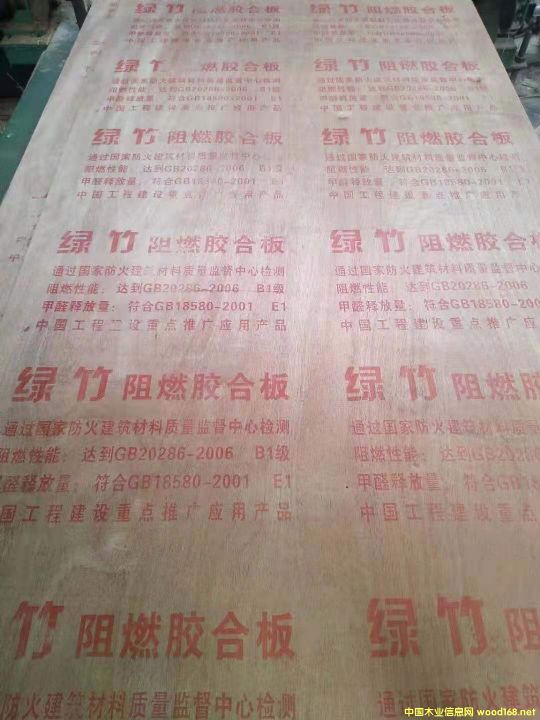 绿竹 阻燃胶合板
中国工程建设重点推广应用产品
绿竹 阻燃胶合板
甲醛释放量：符合GB18580-2001 E1
中国工程建设重点推广应用产品
绿竹 阻燃胶合板
通过国家防火建筑材料质量监督中心检测
阻燃性能：达到GB20286-2006 B1级
甲醛释放量：符合GB18580-2001 E1
中国工程建设重点推广应用产品
绿竹 阻燃胶合板
通过国家防火建筑材料质量监督中心检测
阻燃性能：达到GB20286-2006 B1级
甲醛释放量：符合GB18580-2001 E1
中国工程建设重点推广应用产品
绿竹 阻燃胶合板
通过国家防火建筑材料质量监督中心检
阻燃性能：达到GB20286-2006 B1
甲醛释放量：符合GB18580-2001 E1
中国工程建设重点推广应用产品
绿竹 阻燃胶合板
通过国家防火建筑材料质量监督中心检测
阻燃性能：达到GB20286-2006 B1级
甲醛释放量：符合GB18580-2001 E1
中国工程建设重点推广应用产品
绿竹 阻燃胶合板
通过国家防火建筑材料质量监督中
阻燃性能：达到GB20286-2006 B
甲醛释放量：符合GB18580-2001
中国工程建设重点推广应用产
绿竹 阻燃胶合板
通过国家防火建筑材料质量监督中心检测
阻燃性能：达到GB20286-2006 B1级
醛释放量：符合GB18580-2001 E1
国工程建设重点推广应用产品
绿竹 阻燃胶合
通过国家防火建筑材料质量
阻燃性能：达到GB20286-20
甲醛释放量：符合GB18580-
中国工程建设重点推广
竹 阻燃胶合板
防火建筑材料质量监督中心检测
绿竹 阻燃
通过国家防火建筑材料
中国木业信息网 wood168.net